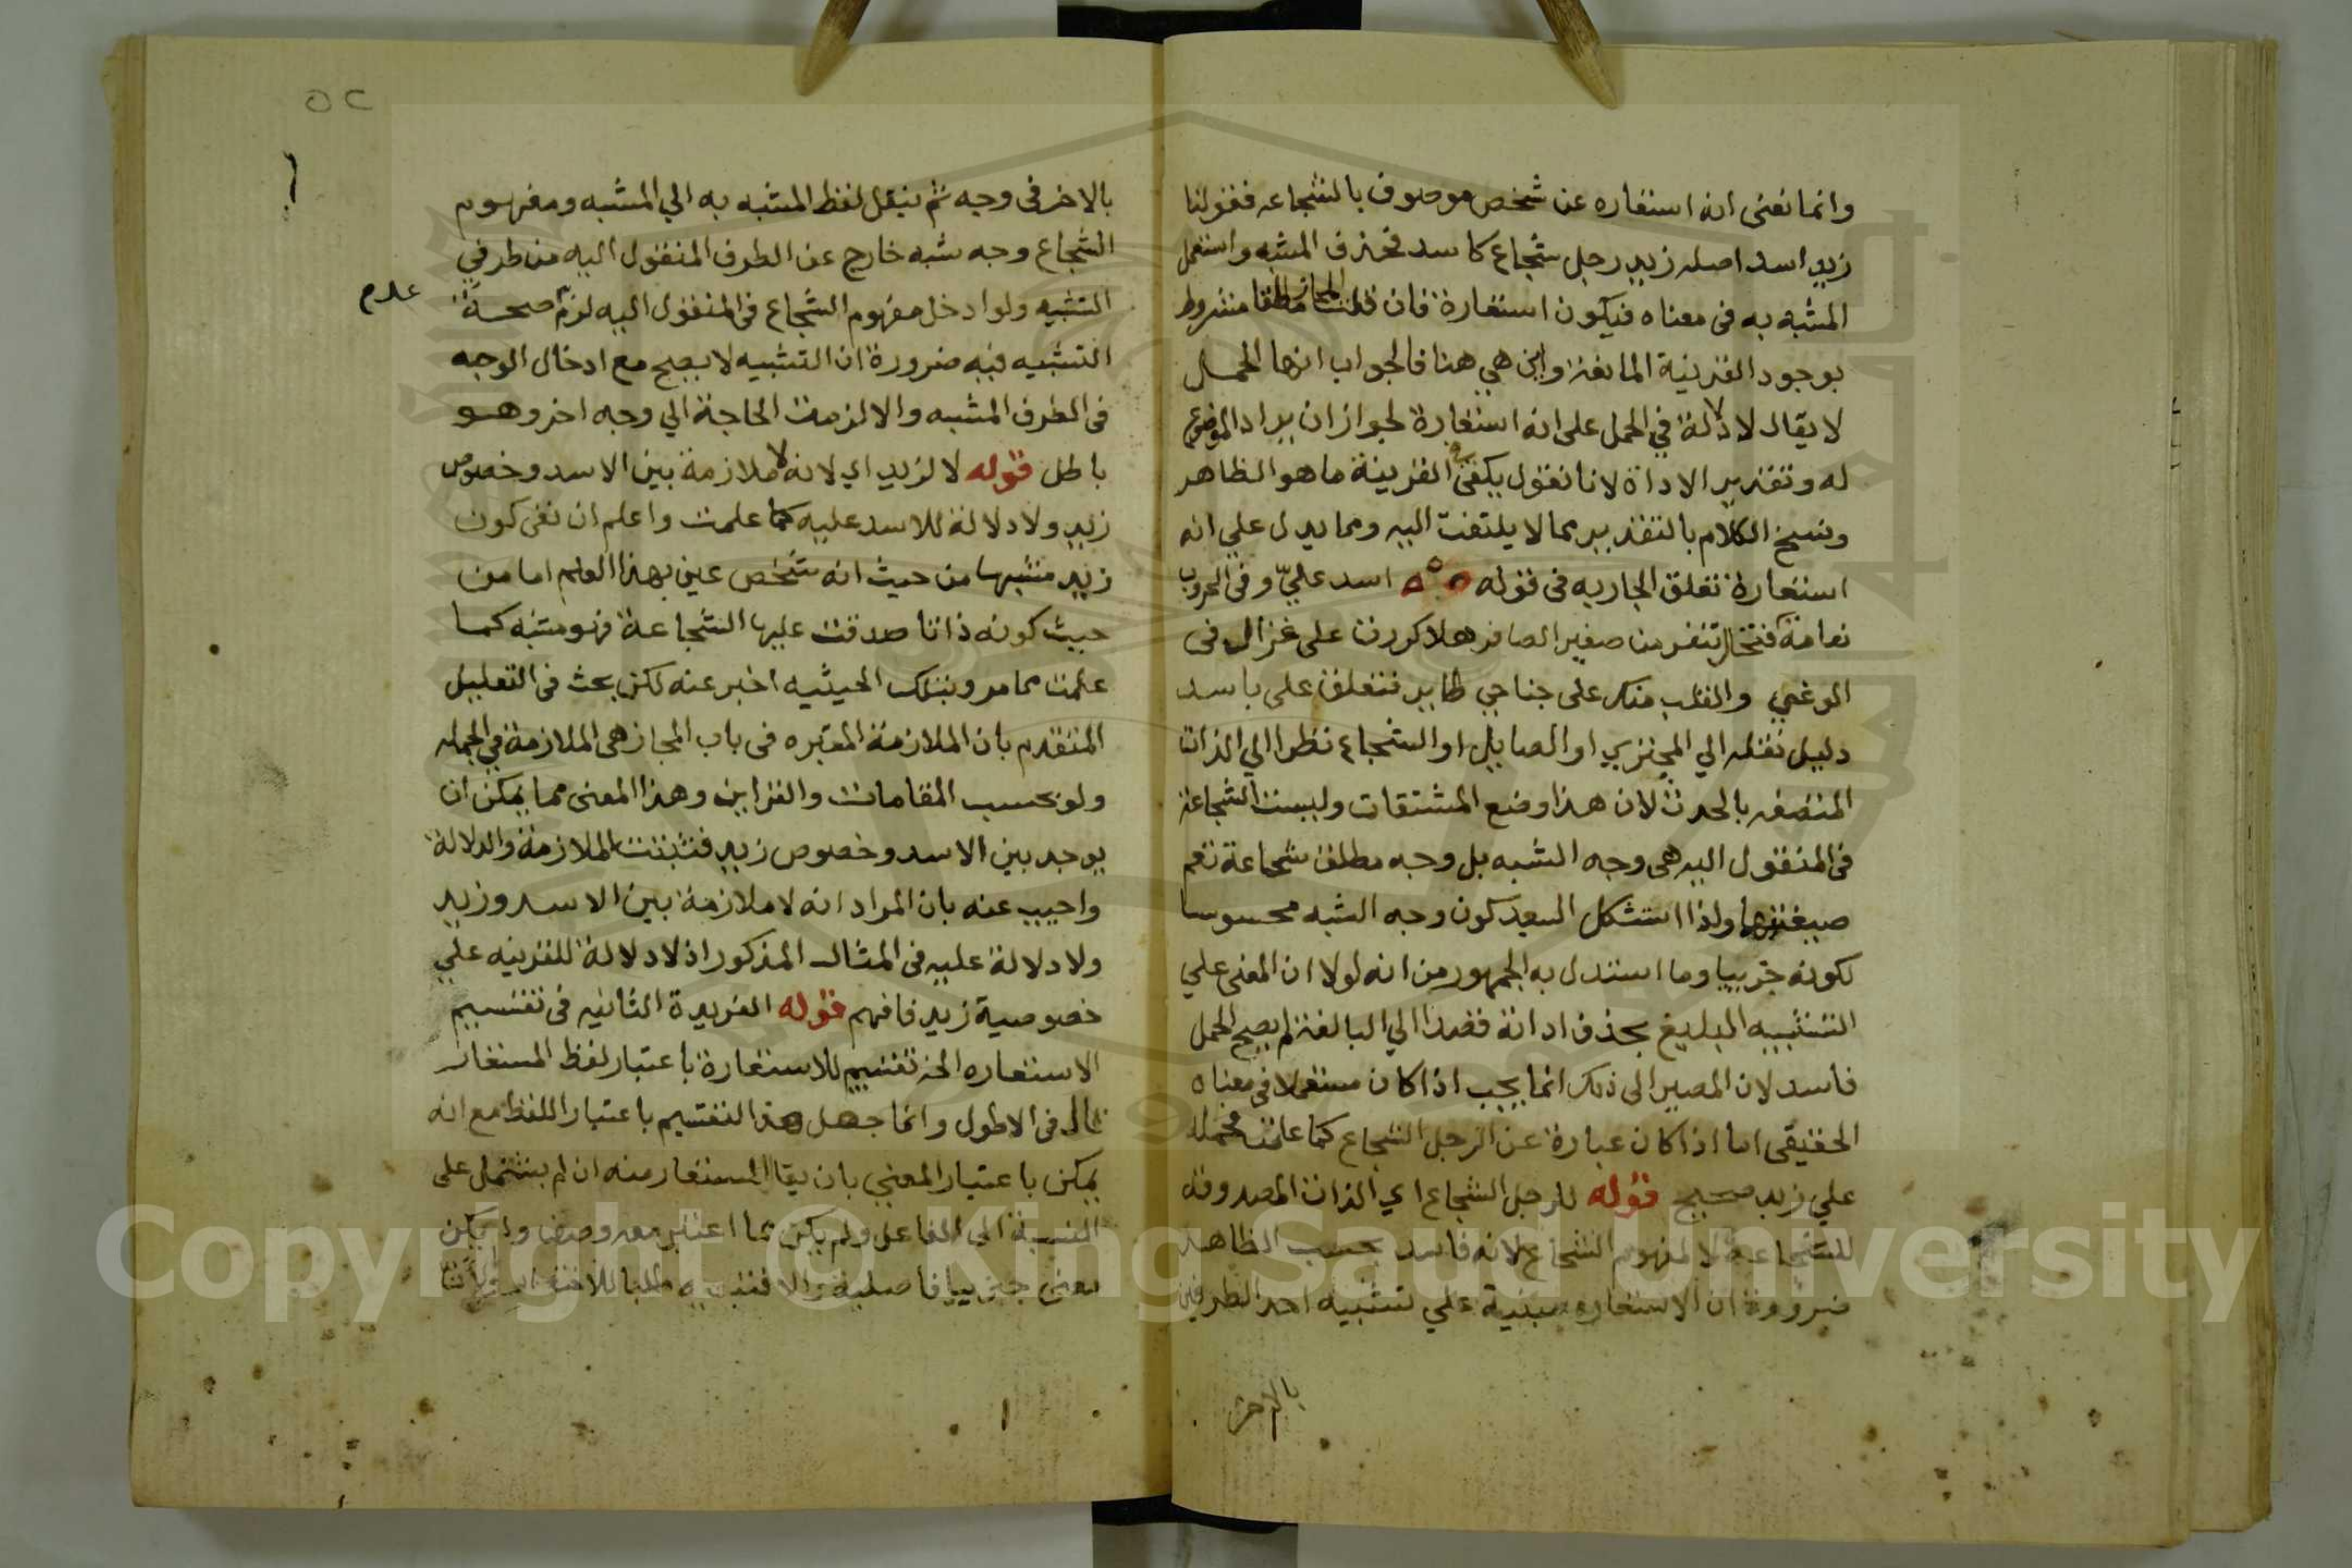 وانما نعنى انه استعاره عن شخص موصوف بالشجاعه فقولنا
زيد اسد اصله زيد رجل شجاع كاسد فحذف المشبه واستعمل
المشبه به فى معناه فيكون استعارة فان قلت المجاز مطلقا مشروط
بوجود القرينة المانعة واين هي هنا فالجواب انها الحمل
لا يقال لا دلالة في الحمل على انه استعارة لجواز ان يراد الموضوع
له وتقدير الاداة لانا نقول يكفى فى القرينة ما هو الظاهر
ونسخ الكلام بالتقدير مما لا يلتفت اليه ومما يدل علي انه
استعارة تعلق الجار به فى قوله اسد عليّ وفى الحروب
نعامة فتخا تنفر من صفير الصافر هلا كررت على غزالة فى
الوغي والقلب منك على جناحي طاير فتعلق على باسد
دليل نقله الي المجتري او الصايل او الشجاع نظرا الي الذات
المتصفه بالحدث لان هذا وضع المشتقات وليست الشجاعة
فى المنقول اليه هى وجه الشبه بل وجه مطلق شجاعة نعم
ولذا استشكل السعد كون وجه الشبه محسوسا
لكونه جزييا وما استدل به الجمهور من انه لولا ان المعنى علي
التشبيه البليغ بحذف اداته قصدا الي المبالغة لم يصح الحمل
فاسد لان المصير الى ذلك انما يجب اذا كان مستعملا فى معناه
الحقيقى اما اذا كان عبارة عن الرجل الشجاع كما علمت فحمله
علي زيد صحيح قوله للرجل الشجاع اي الذات المصدوقه
للشجاعة لا لمفهوم الشجاع لانه فاسد بحسب الظاهر
ضرورة ان الاستعاره مبنية علي تشبيه احد الطرفين
بالاخر
٥٢
بالاخر فى وجه ثم ينقل لفظ المشبه به الي المشبه ومفهوم
الشجاع وجه شبه خارج عن الطرف المنقول اليه من طرفي
التشبيه ولو ادخل مفهوم الشجاع فى المنقول اليه لزم صحة
عدم
التشبيه فيه ضرورة ان التشبيه لا يصح مع ادخال الوجه
فى الطرف المشبه والا لزمت الحاجة الي وجه اخر وهو
باطل قوله لا لزيد اي لانه لا ملازمة بين الاسد وخصوص
زيد ولا دلالة للاسد عليه كما علمت واعلم ان نفى كون
زيد مشبها من حيث انه شخص عين بهذا العلم اما من
حيث كونه ذاتا صدقت عليها الشجاعة فهو مشبه كما
علمت مما مر وبتلك الحيثيه اخبر عنه لكن بحث فى التعليل
المتقدم بان الملازمة المعتبره فى باب المجاز هى الملازمة في الجمله
ولو بحسب المقامات والقراين وهذا المعنى مما يمكن ان
يوجد بين الاسد وخصوص زيد فثبتت الملازمة والدلالة
واجيب عنه بان المراد انه لا ملازمة بين الاسد وزيد
ولا دلالة عليه فى المثال المذكور اذ لا دلالة للقرينه علي
خصوصية زيد فافهم قوله الفريدة الثانيه فى تقسيم
الاستعاره الخ تقسيم للاستعارة باعتبار لفظ المستعار
قال فى الاطول وانما جعل هذا التقسيم باعتبار اللفظ مع انه
يمكن باعتبار المعني بان يقال المستعار منه ان لم يشتمل على
النسبة الى الفاعل ولم يكن مما اعتبر معه وصف ولم يكن
معنى جزييا فاصلية والا فتبعيه